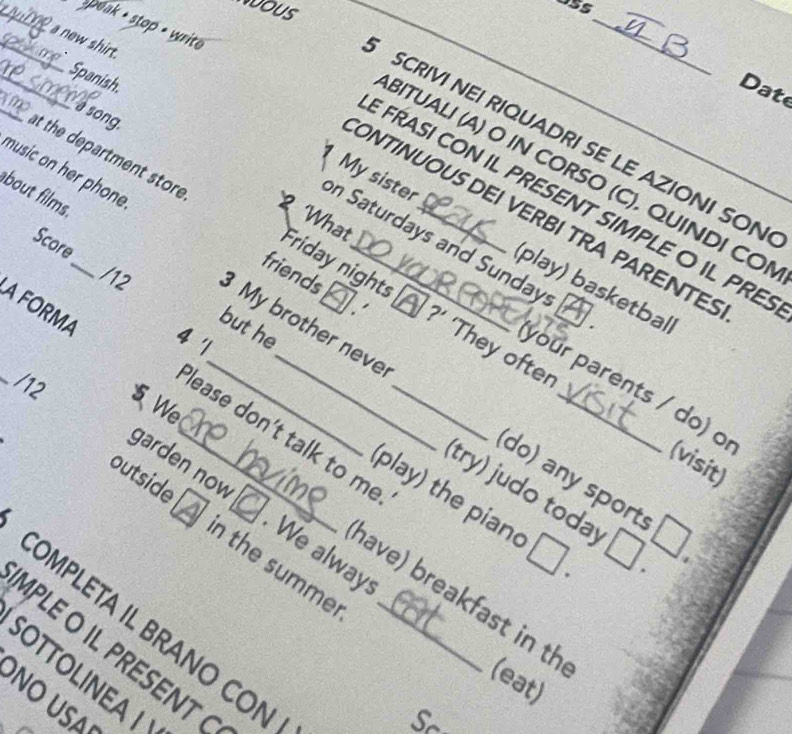 speak • stop • write
a new shirt.
Spanish.
a song.
at the department store.
music on her phone.
about films.
Score /12
LA FORMA
/12
Date
5 SCRIVI NEI RIQUADRI SE LE AZIONI SONO
ABITUALI (A) O IN CORSO (C), QUINDI
LE FRASI CON IL PRESENT SIMPLE O IL
CONTINUOUS DEI VERBI TRA PARENTESI.
1 My sister plays (play) basketball
on Saturdays and Sundays A.
2 'What DO YOUR PARENTS (your parents / do) on
Friday nights A ?' 'They often visit (visit)
friends A.'
3 My brother never (do) any sports □,
but he (try) judo today □.
4 'I (play) the piano □.
Please don't talk to me.'
5 We are having (have) breakfast in the
garden now C. We always eat (eat)
outside A in the summer.
6 COMPLETA IL BRANO CON I
SIMPLE O IL PRESENT
SOTTOLINEA I